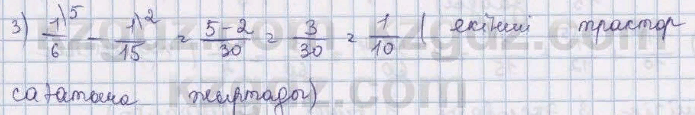 3) 1\5/6 - 1\2/15 = 5-2/30 = 3/30 = 1/10 ( екінші трактор
сағатына жыртады)